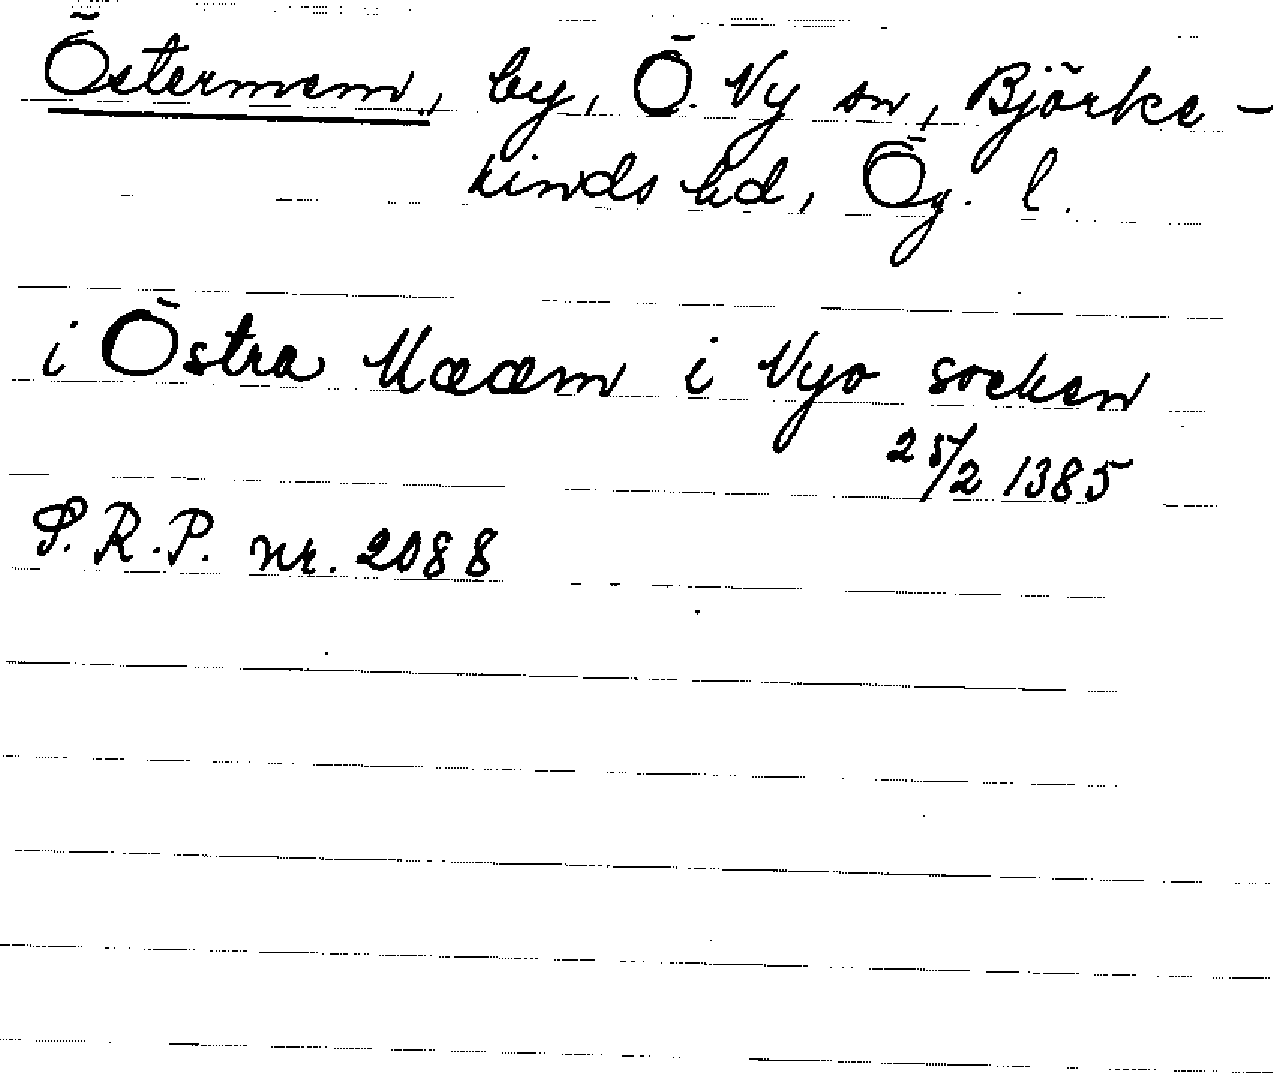 Östermem, by, Ö. Ny sn, Björke-
kinds hd, Ög. l.
i Östra Mææm i Nyo socken
25/2 1385
S.R.P. nr. 2088